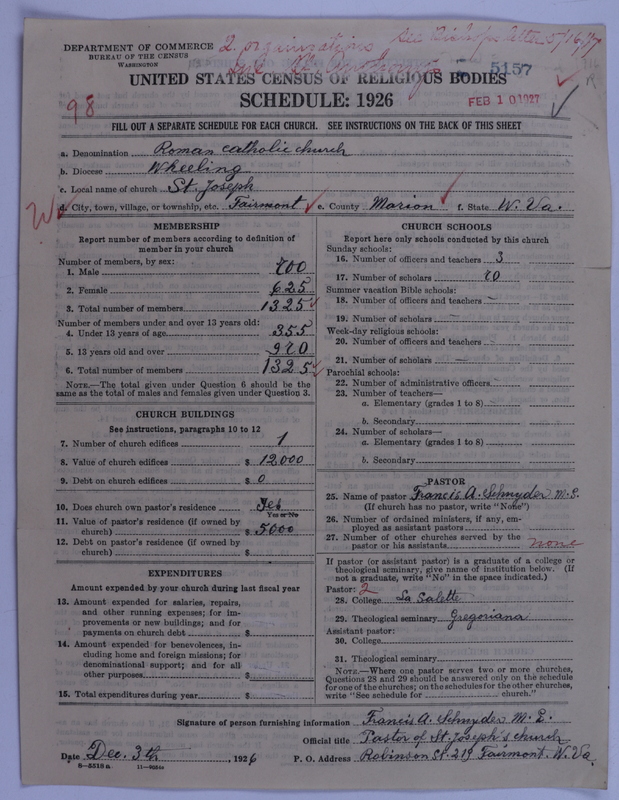 DEPARTMENT OF COMMERCE
BUREAU OF THE CENSUS
WASHINGTON
2 organizations
See Bishops letter 5/16/27
5157
UNITED STATES CENSUS OF RELIGIOUS BODIES
SCHEDULE: 1926
98
FEB 10 1927
FILL OUT A SEPARATE SCHEDULE FOR EACH CHURCH. SEE INSTRUCTIONS ON THE BACK OF THIS SHEET
a. Denomination Roman Catholic church
b. Diocese Wheeling
c. Local name of church St. Joseph
d. City, town, village, or township, etc. Fairmont e. County Marion f. State W. Va.
MEMBERSHIP
Report number of members according to definition of
member in your church
Number of members, by sex:
1. Male 700
2. Female 625
3. Total number of members 1325
Number of members under and over 13 years old:
4. Under 13 years of age 355
5. 13 years old and over 970
6. Total number of members 1325
NOTE.—The total given under Question 6 should be the
same as the total of males and females given under Question 3.
CHURCH BUILDINGS
See instructions, paragraphs 10 to 12
7. Number of church edifices 1
8. Value of church edifices $ 12000
9. Debt on church edifices $ 0
10. Does church own pastor's residence Yes
Yes or No
11. Value of pastor's residence (if owned by
church) $ 5000
12. Debt on pastor's residence (if owned by
church) $
EXPENDITURES
Amount expended by your church during last fiscal year
13. Amount expended for salaries, repairs,
and other running expenses; for im-
provements or new buildings; and for
payments on church debt $
14. Amount expended for benevolences, in-
cluding home and foreign missions; for
denominational support; and for all
other purposes $
15. Total expenditures during year $
CHURCH SCHOOLS
Report here only schools conducted by this church
Sunday schools:
16. Number of officers and teachers 3
17. Number of scholars 70
Summer vacation Bible schools:
18. Number of officers and teachers —
19. Number of scholars —
Week-day religious schools:
20. Number of officers and teachers —
21. Number of scholars —
Parochial schools:
22. Number of administrative officers
23. Number of teachers—
a. Elementary (grades 1 to 8)
b. Secondary
24. Number of scholars—
a. Elementary (grades 1 to 8)
b. Secondary
PASTOR
25. Name of pastor Francis A. Schnyder M.S.
(If church has no pastor, write "None")
26. Number of ordained ministers, if any, em-
ployed as assistant pastors
27. Number of other churches served by the
pastor or his assistants none
If pastor (or assistant pastor) is a graduate of a college or
theological seminary, give name of institution below. (If
not a graduate, write "No" in the space indicated.)
Pastor: 2
28. College La Salette
29. Theological seminary Gregoriana
Assistant pastor:
30. College
31. Theological seminary
NOTE.—Where one pastor serves two or more churches,
Questions 28 and 29 should be answered only on the schedule
for one of the churches; on the schedules for the other churches,
write "See schedule for church."
Signature of person furnishing information Francis A. Schnyder M.S.
Official title Pastor of St. Joseph's church
Date Dec. 3th, 1926 P. O. Address Robinson St. 219 Fairmont. W. Va.
8—5518 a